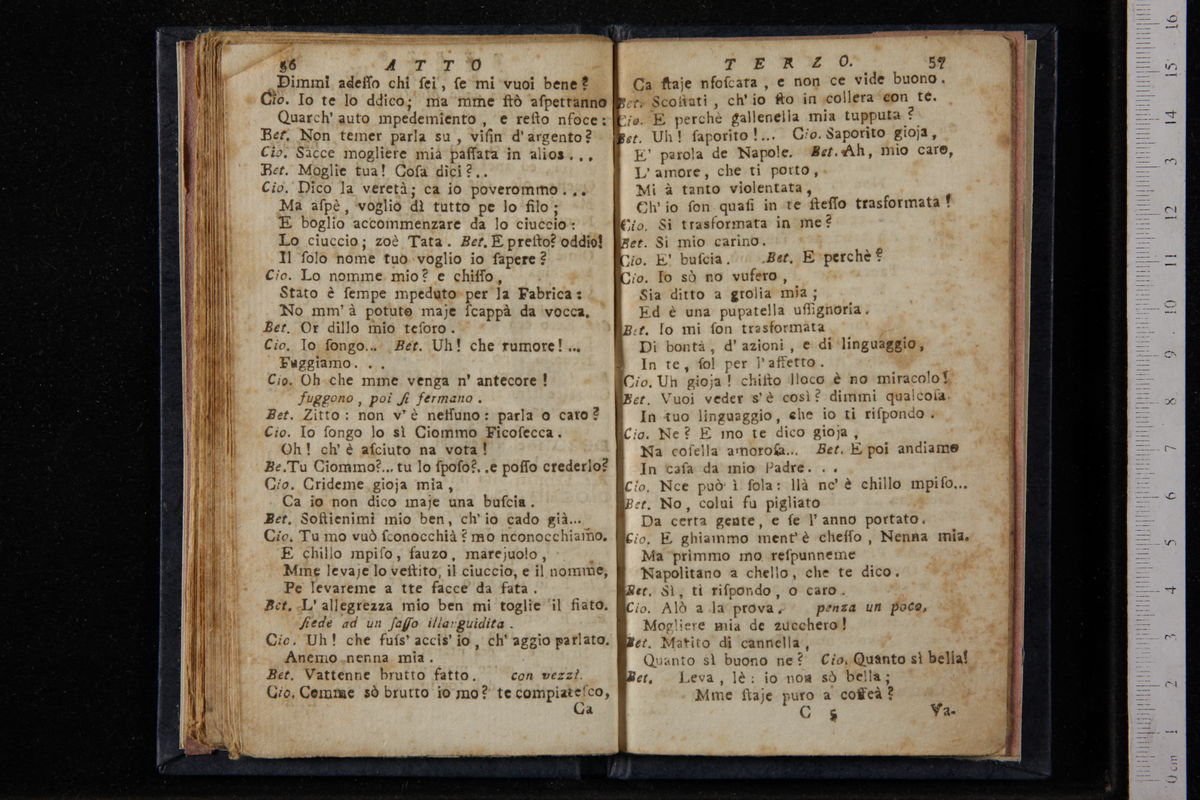 56 ATTO
Dimmi adeſſo chi ſei, ſe mi vuoi bene?
Cio. Io te lo ddico; ma mme ſtò aſpettanno
Quarch' auto mpedemiento, e reſto nfoce:
Bet. Non temer parla su, viſin d'argento?
Cio. Sacce mogliere mia paſſata in alios...
Bet. Moglie tua! Coſa dici?..
Cio. Dico la veretà; ca io poverommo...
Ma aſpè, voglio dì tutto pe lo filo;
E boglio accommenzare da lo ciuccio:
Lo ciuccio; zoè Tata. Bet. E preſto? oddio!
Il ſolo nome tuo voglio io ſapere?
Cio. Lo nomme mio? e chiſſo,
Stato è ſempe mpeduto per la Fabrica:
No mm' à potuto maje ſcappà da vocca.
Bet. Or dillo mio teſoro.
Cio. Io ſongo... Bet. Uh! che rumore!...
Fuggiamo...
Cio. Oh che mme venga n' antecore!
fuggono, poi ſi fermano.
Bet. Zitto: non v'è neſſuno: parla o caro?
Cio. Io ſongo lo sì Ciommo Ficoſecca.
Oh! ch'è aſciuto na vota!
Be. Tu Ciommo?... tu lo ſpoſo?..e poſſo crederlo?
Cio. Crideme gioja mia,
Ca io non dico maje una buſcia.
Bet. Soſtienimi mio ben, ch'io cado già...
Cio. Tu mo vuò ſconocchià? mo nconocchiamo.
E chillo mpiſo, fauzo, marejuolo,
Mme levaje lo veſtito, il ciuccio, e il nomme,
Pe levareme a tte facce da fata.
Bet. L'allegrezza mio ben mi toglie il fiato.
ſiede ad un ſaſſo illanguidita.
Cio. Uh! che fuſs' accis' io, ch' aggio parlato.
Anemo nenna mia.
Bet. Vattenne brutto fatto. con vezzi.
Cio. Comme sò brutto io mo? te compiateſco,
Ca
TERZO. 57
Ca ſtaje nfoſcata, e non ce vide buono.
Bet. Scoſtati, ch'io ſto in collera con te.
Cio. E perchè gallenella mia tupputa?
Bet. Uh! ſaporito!... Cio. Saporito gioja,
E' parola de Napole. Bet. Ah, mio caro,
L'amore, che ti porto,
Mi à tanto violentata,
Ch'io ſon quaſi in te ſteſſo trasformata!
Cio. Si trasformata in me?
Bet. Si mio carino.
Cio. E' buſcia. Bet. E perchè?
Cio. Io sò no vufero,
Sia ditto a grolia mia;
Ed è una pupatella uſſignoria.
Bet. Io mi ſon trasformata
Di bontà, d'azioni, e di linguaggio,
In te, ſol per l'affetto.
Cio. Uh gioja! chiſto lloco è no miracolo!
Bet. Vuoi veder s'è così? dimmi qualcoſa
In tuo linguaggio, che io ti riſpondo.
Cio. Ne? E mo te dico gioja,
Na coſella amoroſa... Bet. E poi andiamo
In caſa da mio Padre...
Cio. Nce può ì ſola: llà nc'è chillo mpiſo...
Bet. No, colui fu pigliato
Da certa gente, e ſe l'anno portato.
Cio. E ghiammo ment'è cheſſo, Nenna mia.
Ma primmo mo reſpunneme
Napolitano a chello, che te dico.
Bet. Sì, ti riſpondo, o caro.
Cio. Alò a la prova. penza un poco,
Mogliere mia de zucchero!
Bet. Marito di cannella,
Quanto sì buono ne? Cio. Quanto sì bella!
Bet. Leva, lè: io non sò bella;
Mme ſtaje puro a coffeà?
C 5 Va-
0 cm 1 2 3 4 5 6 7 8 9 10 11 12 13 14 15 16